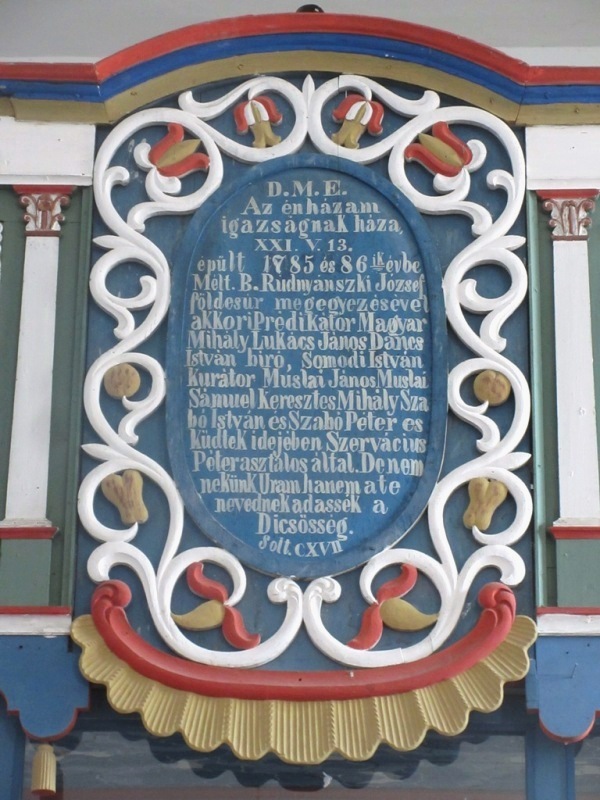 D.M.E.
Az énházam
igazságnak háza,
XXI. V. 13.
épült 1785 és 86 ik évbe
Mélt. B. Rudnyánszki József
földesúr megegyezésével
akkori Prédikátor Magyar
Mihály Lukács János Dancs
István biró, Somodi István
Kurátor Muslai János Muslai
Sámuel Keresztes Mihály Sza
bó István és Szabó Péter es
küdtek idejében Szervácius
Péter asztalos által. De nem
nekünk Uram hanem a te
nevednek adassék a
Dicsösség.
Solt. CXVII